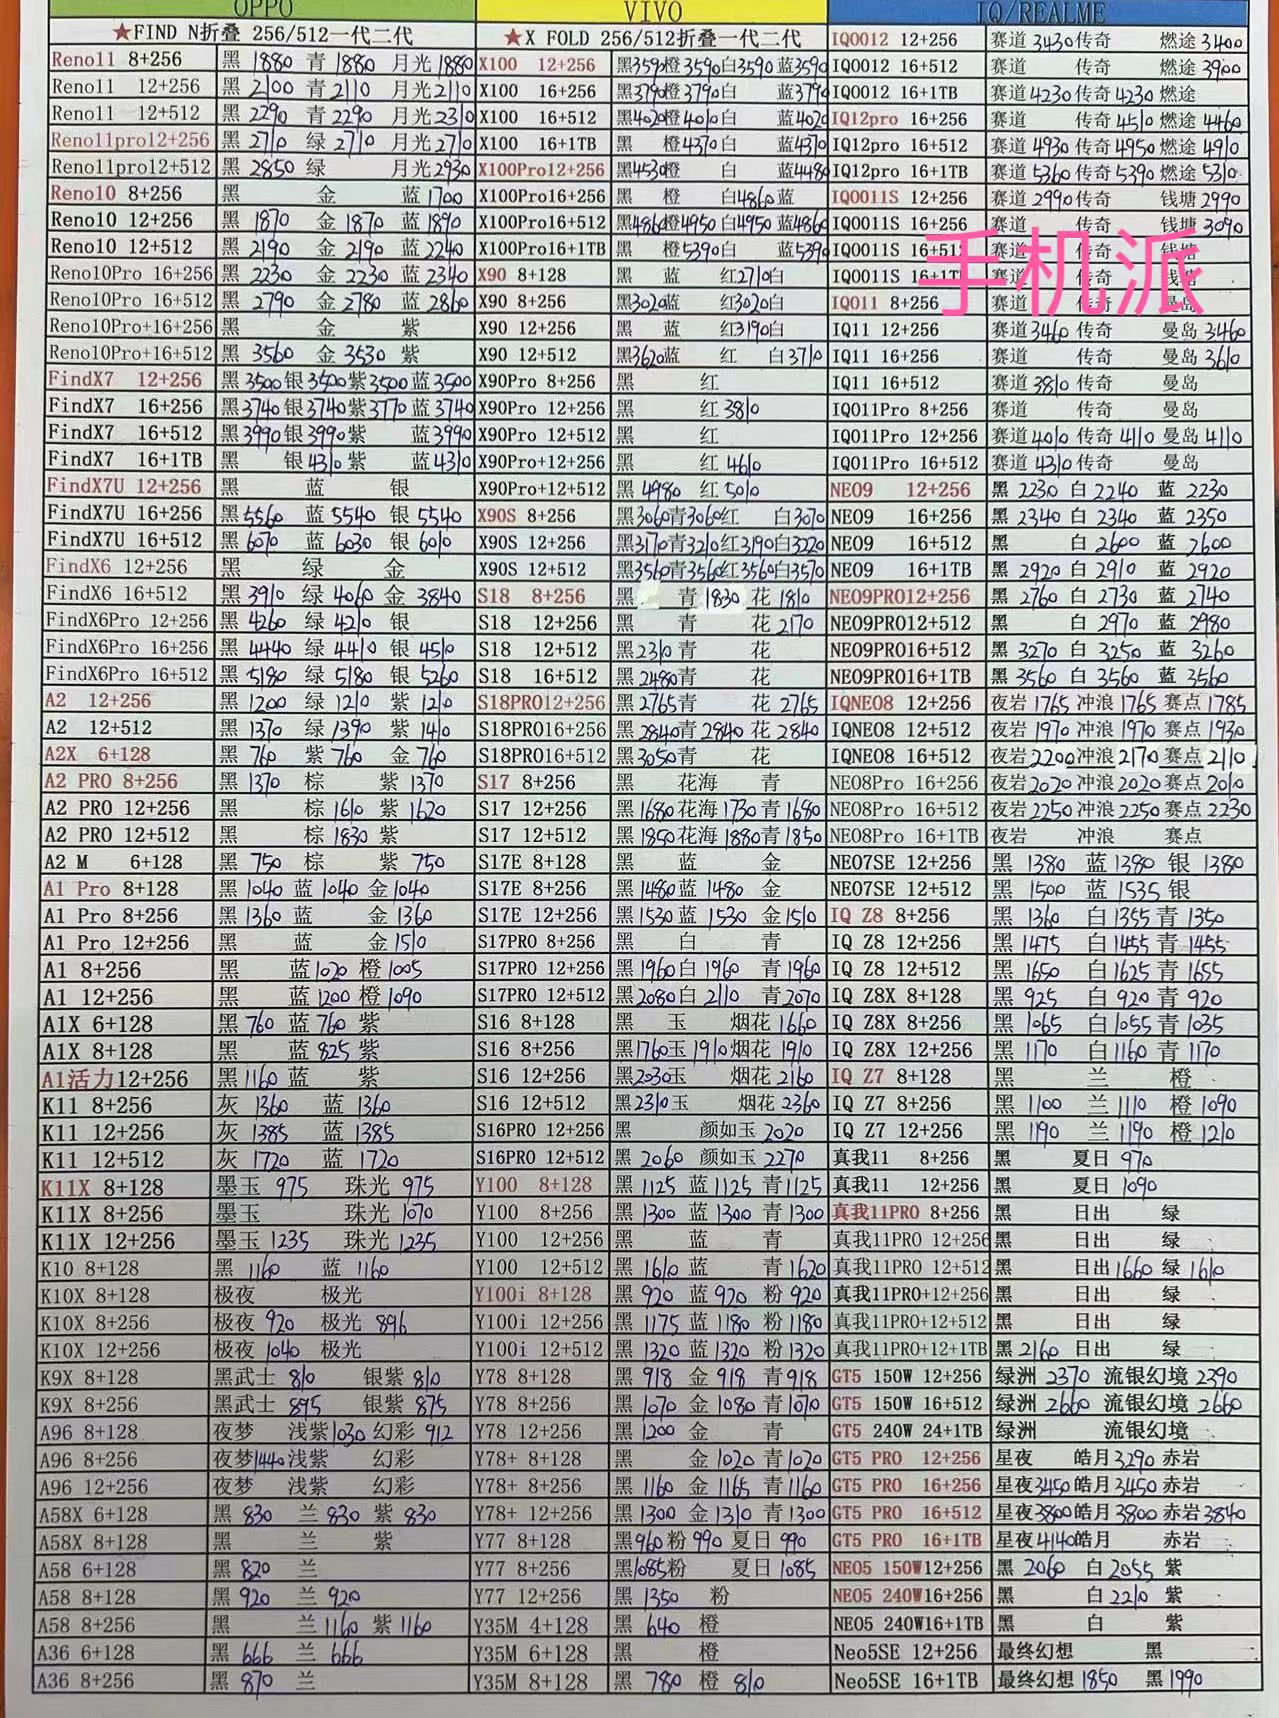 OPPO VIVO IQ/REALME
★FIND N折叠 256/512一代二代 ★X FOLD 256/512折叠一代二代 IQOO12 12+256 赛道 3430 传奇 燃途 3400
Reno11 8+256 黑 1880 青 1880 月光 1880 X100 12+256 黑3590橙3590白3590蓝3590 IQOO12 16+512 赛道 传奇 燃途 3900
Reno11 12+256 黑 2100 青 2110 月光 2110 X100 16+256 黑3790橙3790白 蓝3790 IQOO12 16+1TB 赛道 4230 传奇 4230 燃途
Reno11 12+512 黑 2290 青 2290 月光 2310 X100 16+512 黑4020橙4010白 蓝4020 IQ12pro 16+256 赛道 传奇 4510 燃途 4460
Reno11pro12+256 黑 2710 绿 2710 月光 2710 X100 16+1TB 黑 橙4370白 蓝4370 IQ12pro 16+512 赛道 4930 传奇 4950 燃途 4910
Reno11pro12+512 黑 2850 绿 月光 2930 X100Pro12+256 黑4530橙 白 蓝4480 IQ12pro 16+1TB 赛道 5360 传奇 5390 燃途 5310
Reno10 8+256 黑 金 蓝 1700 X100Pro16+256 黑 橙 白4860蓝 IQOO11S 12+256 赛道 2990 传奇 钱塘 2990
Reno10 12+256 黑 1870 金 1870 蓝 1890 X100Pro16+512 黑4860橙4950白4950蓝4860 IQOO11S 16+256 赛道 传奇 钱塘 3090
Reno10 12+512 黑 2190 金 2190 蓝 2240 X100Pro16+1TB 黑 橙5390白 蓝5390 IQOO11S 16+512 赛道 传奇 钱塘
手机派
Reno10Pro 16+256 黑 2230 金 2230 蓝 2340 X90 8+128 黑 蓝 红2710白 IQOO11S 16+1T 赛道 传奇 钱塘
Reno10Pro 16+512 黑 2790 金 2780 蓝 2860 X90 8+256 黑3020蓝 红3020白 IQOO11 8+256 赛道 传奇 曼岛
Reno10Pro+16+256 黑 金 紫 X90 12+256 黑 蓝 红3190白 IQ11 12+256 赛道 3460 传奇 曼岛 3460
Reno10Pro+16+512 黑 3560 金 3530 紫 X90 12+512 黑3620蓝 红 白3710 IQ11 16+256 赛道 传奇 曼岛 3610
FindX7 12+256 黑3500银3500紫3500蓝3500 X90Pro 8+256 黑 红 IQ11 16+512 赛道 3810 传奇 曼岛
FindX7 16+256 黑3740银3740紫3770蓝3740 X90Pro 12+256 黑 红3810 IQOO11Pro 8+256 赛道 传奇 曼岛
FindX7 16+512 黑3990银3990紫 蓝3990 X90Pro 12+512 黑 红 IQOO11Pro 12+256 赛道 4010 传奇 4110 曼岛 4110
FindX7 16+1TB 黑 银4310紫 蓝4310 X90Pro+12+256 黑 红4610 IQOO11Pro 16+512 赛道 4310 传奇 曼岛
FindX7U 12+256 黑 蓝 银 X90Pro+12+512 黑 4980 红 5010 NEO9 12+256 黑 2230 白 2240 蓝 2230
FindX7U 16+256 黑 5560 蓝 5540 银 5540 X90S 8+256 黑3060青3060红 白3070 NEO9 16+256 黑 2340 白 2340 蓝 2350
FindX7U 16+512 黑 6070 蓝 6030 银 6010 X90S 12+256 黑3170青3210红3190白3220 NEO9 16+512 黑 白 2600 蓝 2600
FindX6 12+256 黑 绿 金 X90S 12+512 黑3560青3560红3560白3570 NEO9 16+1TB 黑 2920 白 2910 蓝 2920
FindX6 16+512 黑 3910 绿 4060 金 3840 S18 8+256 黑 青 1830 花 1810 NEO9PRO12+256 黑 2760 白 2730 蓝 2740
FindX6Pro 12+256 黑 4260 绿 4210 银 S18 12+256 黑 青 花 2170 NEO9PRO12+512 黑 白 2970 蓝 2980
FindX6Pro 16+256 黑 4440 绿 4410 银 4510 S18 12+512 黑2310青 花 NEO9PRO16+512 黑 3270 白 3250 蓝 3260
FindX6Pro 16+512 黑 5180 绿 5180 银 5260 S18 16+512 黑2480青 花 NEO9PRO16+1TB 黑 3560 白 3560 蓝 3560
A2 12+256 黑 1200 绿 1210 紫 1210 S18PRO12+256 黑2765青 花 2765 IQNEO8 12+256 夜岩 1765 冲浪 1765 赛点 1785
A2 12+512 黑 1370 绿 1390 紫 1410 S18PRO16+256 黑2840青2840花 2840 IQNEO8 16+256 夜岩 1970 冲浪 1970 赛点 1930
A2X 6+128 黑 760 紫 760 金 760 S18PRO16+512 黑3050青 花 IQNEO8 16+512 夜岩2200冲浪 2170 赛点 2110
A2 PRO 8+256 黑 1370 棕 紫 1370 S17 8+256 黑 花海 青 NEO8Pro 16+256 夜岩2020冲浪2020赛点2010
A2 PRO 12+256 黑 棕 1610 紫 1620 S17 12+256 黑1680花海1730青1680 NEO8Pro 16+512 夜岩2250冲浪2250赛点2230
A2 PRO 12+512 黑 棕 1830 紫 S17 12+512 黑1850花海1880青1850 NEO8Pro 16+1TB 夜岩 冲浪 赛点
A2 M 6+128 黑 750 棕 紫 750 S17E 8+128 黑 蓝 金 NEO7SE 12+256 黑 1380 蓝1380 银 1380
A1 Pro 8+128 黑1040 蓝1040 金1040 S17E 8+256 黑1480蓝 1480 金 NEO7SE 12+512 黑 1500 蓝1535银
A1 Pro 8+256 黑1360 蓝 金1360 S17E 12+256 黑1530蓝 1530 金1510 IQ Z8 8+256 黑 1360 白1355青 1350
A1 Pro 12+256 黑 蓝 金1510 S17PRO 8+256 黑 白 青 IQ Z8 12+256 黑 1475 白1455青 1455
A1 8+256 黑 蓝1020 橙1005 S17PRO 12+256 黑1960白 1960 青1960 IQ Z8 12+512 黑 1650 白1625青 1655
A1 12+256 黑 蓝1200 橙1090 S17PRO 12+512 黑2080白 2110 青2070 IQ Z8X 8+128 黑 925 白 920 青 920
A1X 6+128 黑 760 蓝 760 紫 S16 8+128 黑 玉 烟花 1660 IQ Z8X 8+256 黑 1065 白1055青 1035
A1X 8+128 黑 蓝 825 紫 S16 8+256 黑1760玉 1910烟花 1910 IQ Z8X 12+256 黑 1170 白1160青 1170
A1活力12+256 黑1160 蓝 紫 S16 12+256 黑2030玉 烟花 2160 IQ Z7 8+128 黑 兰 橙
K11 8+256 灰 1360 蓝 1360 S16 12+512 黑2310玉 烟花 2360 IQ Z7 8+256 黑 1100 兰 1110 橙 1090
K11 12+256 灰 1385 蓝 1385 S16PRO 12+256 黑 颜如玉 2020 IQ Z7 12+256 黑 1190 兰 1190 橙 1210
K11 12+512 灰 1720 蓝 1720 S16PRO 12+512 黑 2060 颜如玉 2270 真我11 8+256 黑 夏日 970
K11X 8+128 墨玉 975 珠光 975 Y100 8+128 黑 1125 蓝1125 青1125 真我11 12+256 黑 夏日 1090
K11X 8+256 墨玉 珠光 1070 Y100 8+256 黑 1300 蓝1300 青1300 真我11PRO 8+256 黑 日出 绿
K11X 12+256 墨玉 1235 珠光 1235 Y100 12+256 黑 蓝 青 真我11PRO 12+256 黑 日出 绿
K10 8+128 黑 1160 蓝 1160 Y100 12+512 黑 1610 蓝 青1620 真我11PRO 12+512 黑 日出1660 绿 1610
K10X 8+128 极夜 极光 Y100i 8+128 黑 920 蓝 920 粉 920 真我11PRO+12+256 黑 日出 绿
K10X 8+256 极夜 920 极光 896 Y100i 12+256 黑 1175 蓝 1180 粉 1180 真我11PRO+12+512 黑 日出 绿
K10X 12+256 极夜 1040 极光 Y100i 12+512 黑 1320 蓝1320 粉 1320 真我11PRO+12+1TB 黑 2160 日出 绿
K9X 8+128 黑武士 810 银紫 810 Y78 8+128 黑 918 金 918 青918 GT5 150W 12+256 绿洲 2370 流银幻境 2390
K9X 8+256 黑武士 895 银紫 875 Y78 8+256 黑 1070 金 1080 青1070 GT5 150W 16+512 绿洲 2660 流银幻境 2660
A96 8+128 夜梦 浅紫1030 幻彩 912 Y78 12+256 黑 1200 金 青 GT5 240W 24+1TB 绿洲 流银幻境
A96 8+256 夜梦1440浅紫 幻彩 Y78+ 8+128 黑 金1020 青1020 GT5 PRO 12+256 星夜 皓月3290 赤岩
A96 12+256 夜梦 浅紫 幻彩 Y78+ 8+256 黑 1160 金 1165 青1160 GT5 PRO 16+256 星夜3450皓月3450 赤岩
A58X 6+128 黑 830 兰 830 紫 830 Y78+ 12+256 黑 1300 金1310 青1300 GT5 PRO 16+512 星夜3800皓月3800 赤岩3840
A58X 8+128 黑 兰 紫 Y77 8+128 黑960粉 990 夏日 990 GT5 PRO 16+1TB 星夜4140皓月 赤岩
A58 6+128 黑 820 兰 Y77 8+256 黑1085粉 夏日 1085 NEO5 150W12+256 黑 2060 白 2055 紫
A58 8+128 黑 920 兰 920 Y77 12+256 黑 1350 粉 NEO5 240W16+256 黑 白 2210 紫
A58 8+256 黑 兰1160 紫 1160 Y35M 4+128 黑 640 橙 NEO5 240W16+1TB 黑 白 紫
A36 6+128 黑 666 兰 666 Y35M 6+128 黑 橙 Neo5SE 12+256 最终幻想 黑
A36 8+256 黑 870 兰 Y35M 8+128 黑 780 橙 810 Neo5SE 16+1TB 最终幻想 1850 黑 1990